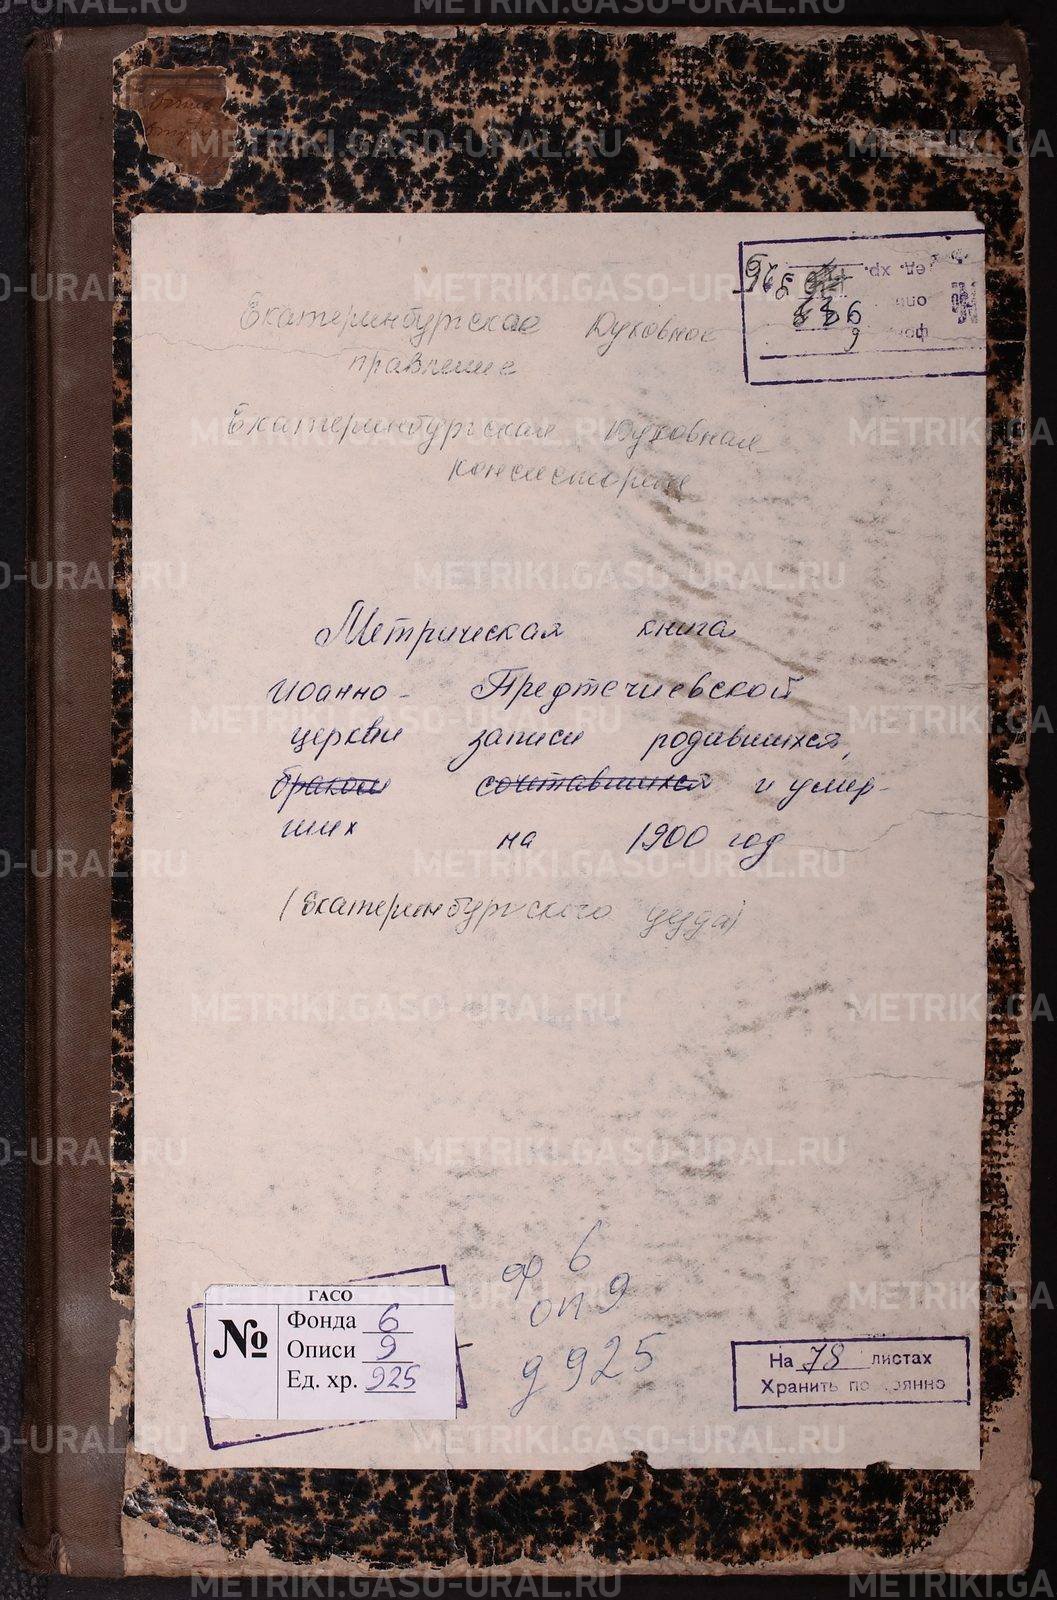 Екатеринбургское Духовное
правление
Екатеринбургская Духовная
консистория
Метрическая книга
Иоанно- Предтечиевской
церкви записи родившихся,
бракосо сочетавшихся и умер-
ших на 1900 год
(Екатеринбургского уезда)
ф 6
оп 9
д 925
ГАСО
№
Фонда 6
Описи 9
Ед. хр. 925
На 78 листах
Хранить
METRIKI.GASO-URAL.RU